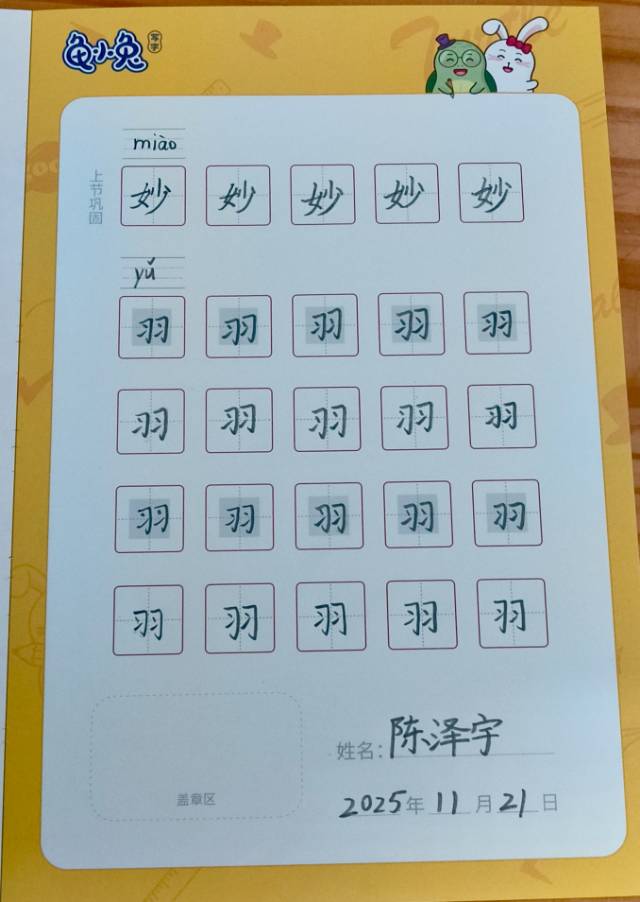 龟小兔写字
miào
上节巩固
妙 妙 妙 妙 妙
yǔ
羽 羽 羽 羽 羽
羽 羽 羽 羽 羽
羽 羽 羽 羽 羽
羽 羽 羽 羽 羽
姓名:陈泽宇
盖章区
2025年11月21日